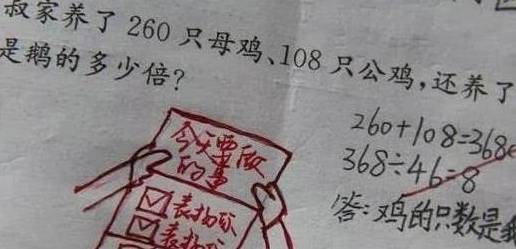 叔家养了 260 只母鸡、108 只公鸡，还养了
是鹅的多少倍？
260+108=368
368÷46=8
答：鸡的只数是
今天要做
的事
表扬你
表扬你